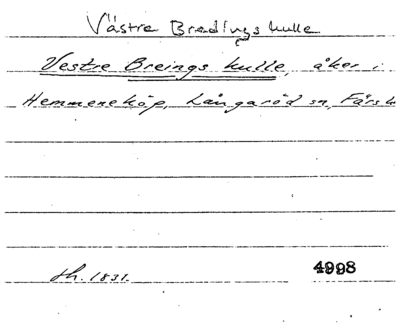 Västre Bredings kulle
Vestre Breings kulle, åker i
Hemmeneköp, Långaröd sn, Färs h
Sk. 1831.
4998